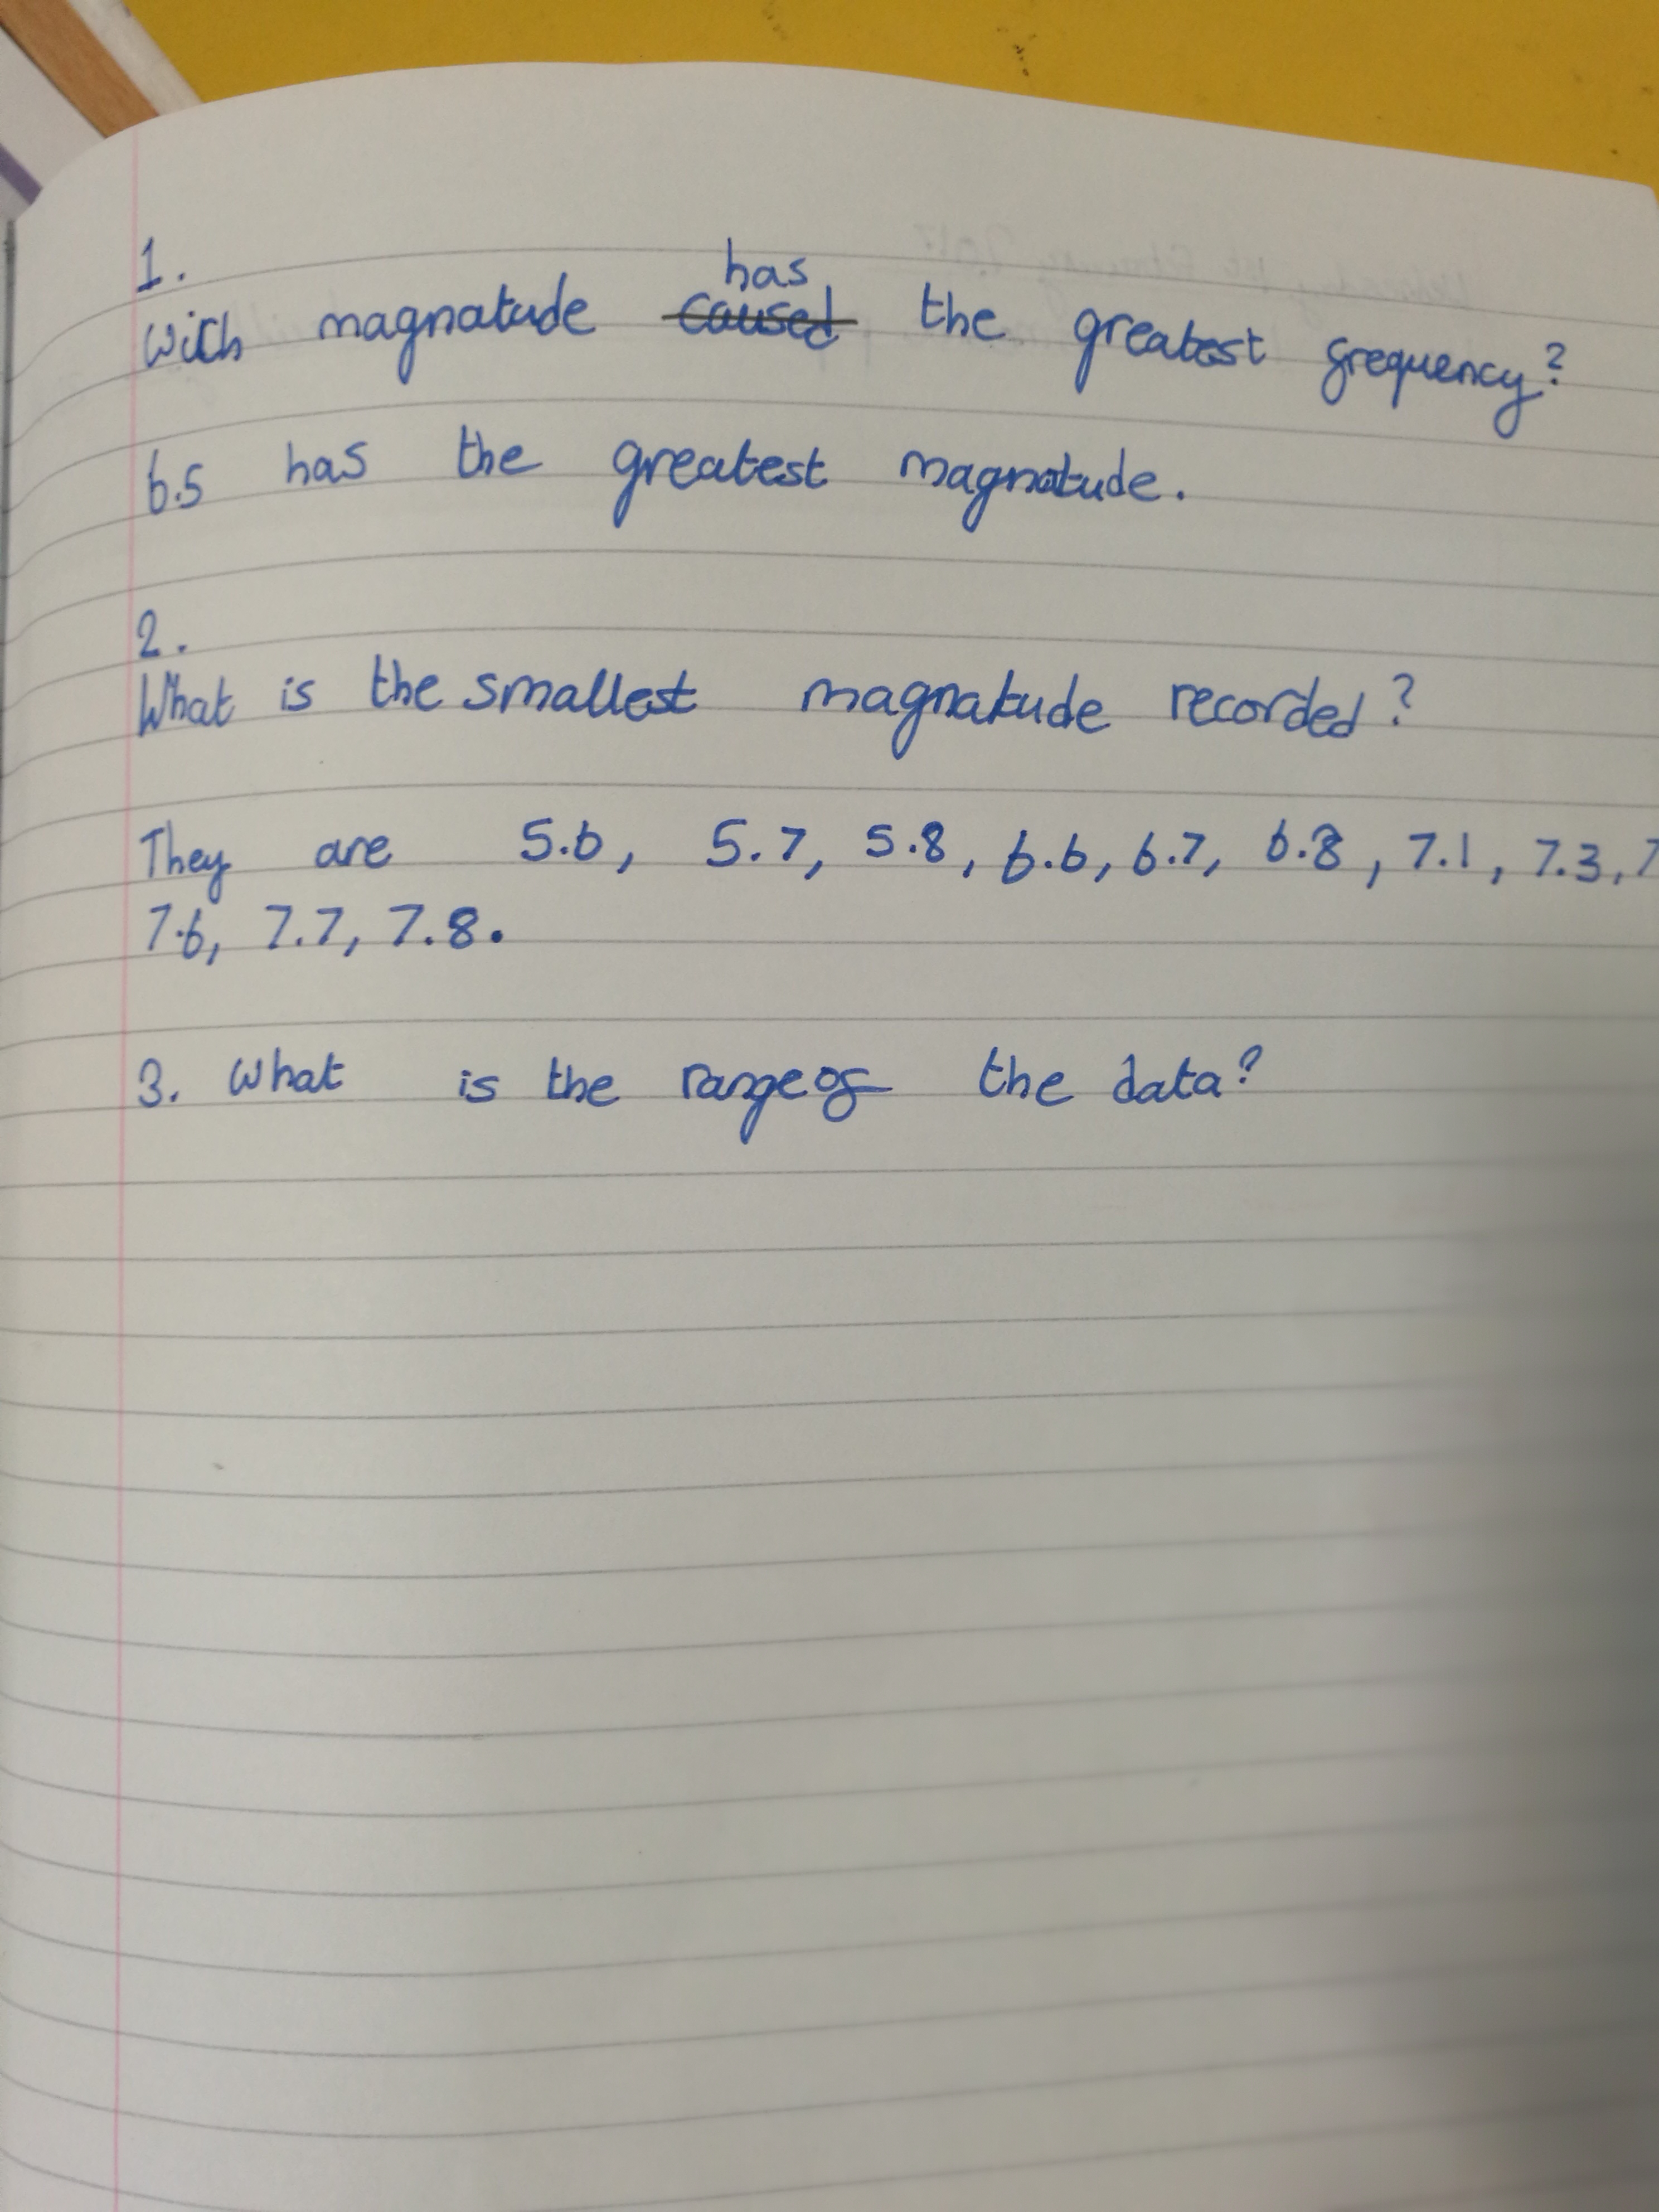 1.
has
wich magnatude caused the greatest frequency?
6.5 has the greatest magnatude.
2.
What is the smallest magnatude recorded?
They are 5.6, 5.7, 5.8, 6.6, 6.7, 6.8, 7.1, 7.3, 7
7.6, 7.7, 7.8.
3. What is the range of the data?